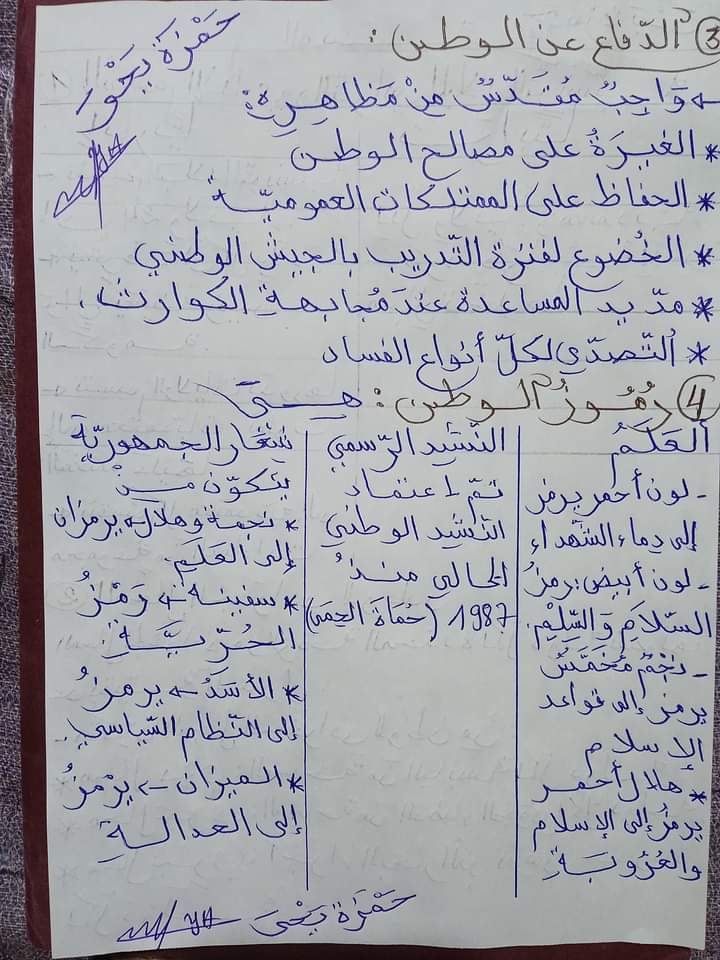 ③ الدّفاع عن الوطن :
حَمْزَة يَحْيَ
← وَاجِبٌ مُقَدَّسٌ مِنْ مَظَاهِرِهِ:
* الغيرَةُ على مصالح الوطن
* الحفاظ على الممتلكات العموميّة
* الخُضوع لفترة التّدريب بالجيش الوطني
* مدّ يد المساعدة عندَ مُجابهةِ الكوارث.
* التّصدّي لكلّ أنواع الفساد
④ رُمُوزُ الوطن : هِيَ
العَلَمُ
- لون أحمر يرمز
إلى دماء الشّهداء
- لون أبيض: رمزُ
السّلاَمِ وَالسِّلْمِ.
- نجمٌ مُخَمَّسٌ
يرمز إلى قواعد
الإسلام
* هلال أحمر
يرمزُ إلى الإسلام
والعُرُوبَةِ
النّشيد الرّسمي
تمّ اعتماد
النّشيد الوطني
الحالي منذُ
1987 (حُمَاةَ الحِمَى)
شعار الجمهوريّة
يتكوّن مِنْ
* نجمة وهلال ← يرمزان
إلى العَلَمِ
* سفينة ← رَمْزُ
الحُرّيَّةِ
* الأسَدُ ← يرمزُ
إلى النّظام السّياسي.
* الميزان ← يرْمزُ
إلى العدالةِ
حَمْزَة يَحْيَ